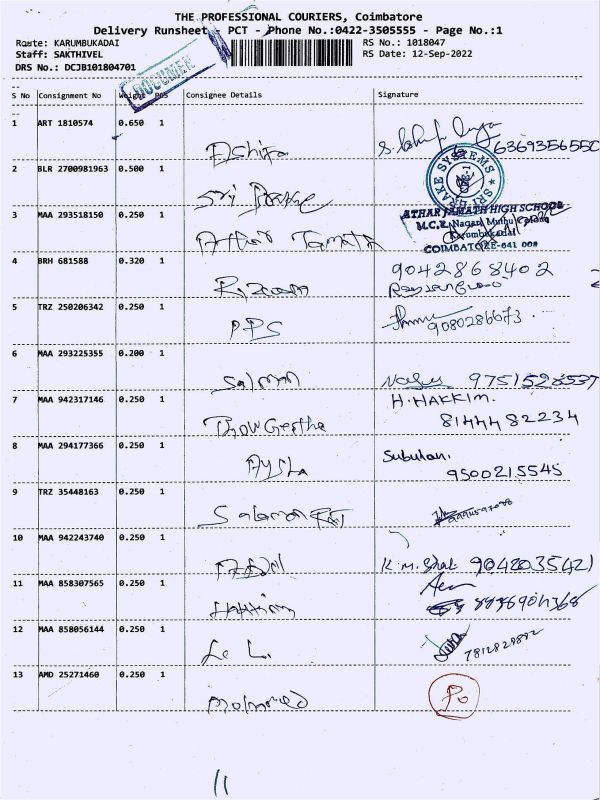 THE PROFESSIONAL COURIERS, Coimbatore
Delivery Runsheet - PCT - Phone No.:0422-3505555 - Page No.:1
Route: KARUMBUKADAI RS No.: 1018047
Staff: SAKTHIVEL RS Date: 12-Sep-2022
DRS No.: DCJB101804701
DOCUMEN
S No Consignment No Weight PCS Consignee Details Signature
1 ART 1810574 0.650 1 6369356550
2 BLR 2700981963 0.500 1 Sri
3 MAA 293518150 0.250 1 ATHAR JAMATH HIGH SCHOOL
M.C.R. Nagar
Karumbukadai
COIMBATORE-641 008
4 BRH 681588 0.320 1 Rizwan 9042868402
5 TRZ 250206342 0.250 1 PPS 9080286673
6 MAA 293225355 0.200 1 Salman 9751528537
7 MAA 942317146 0.250 1 H. HAKKIM.
8144482234
8 MAA 294177366 0.250 1 AYSha Subulani
9500215545
9 TRZ 35448163 0.250 1
10 MAA 942243740 0.250 1 K.M. Shak 9042035421
11 MAA 858307565 0.250 1 HAKKIM
12 MAA 858056144 0.250 1 Le L. 7812829892
13 AMD 25271460 0.250 1 Mohamed Po
11